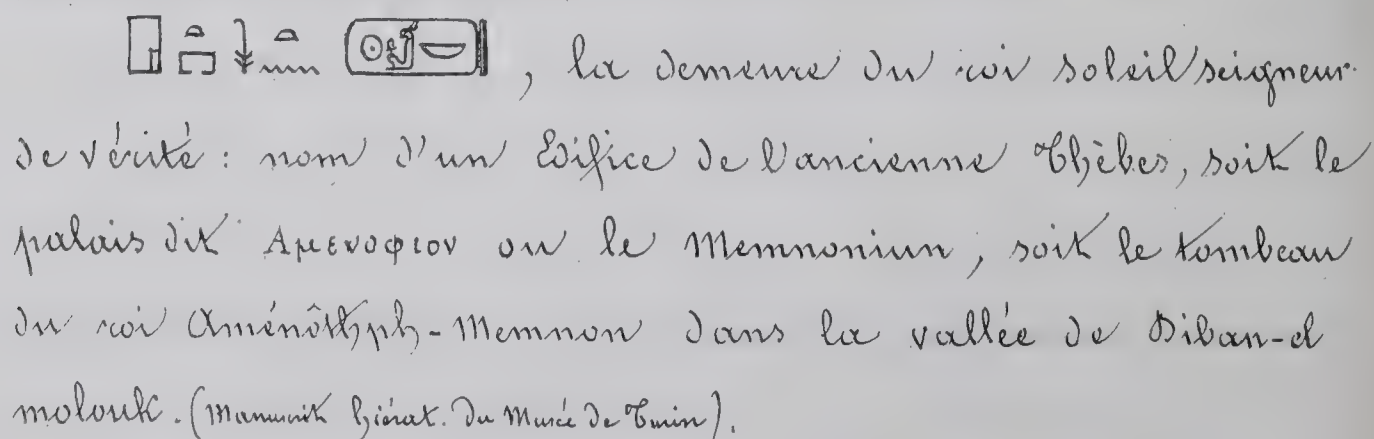 𓉗𓏏𓉐 𓇓𓏏𓈖 𓍹𓇳𓁦𓎟𓍺, la demeure du roi soleil seigneur
de vérité: nom d'un Edifice de l'ancienne Thèbes, soit le
palais dit Αμενοφιον ou le Memnoniun, soit le tombeau
du roi Aménôthph-Memnon dans la vallée de Biban-el
molouk. (Manuscrit hiérat. du Musée de Turin).